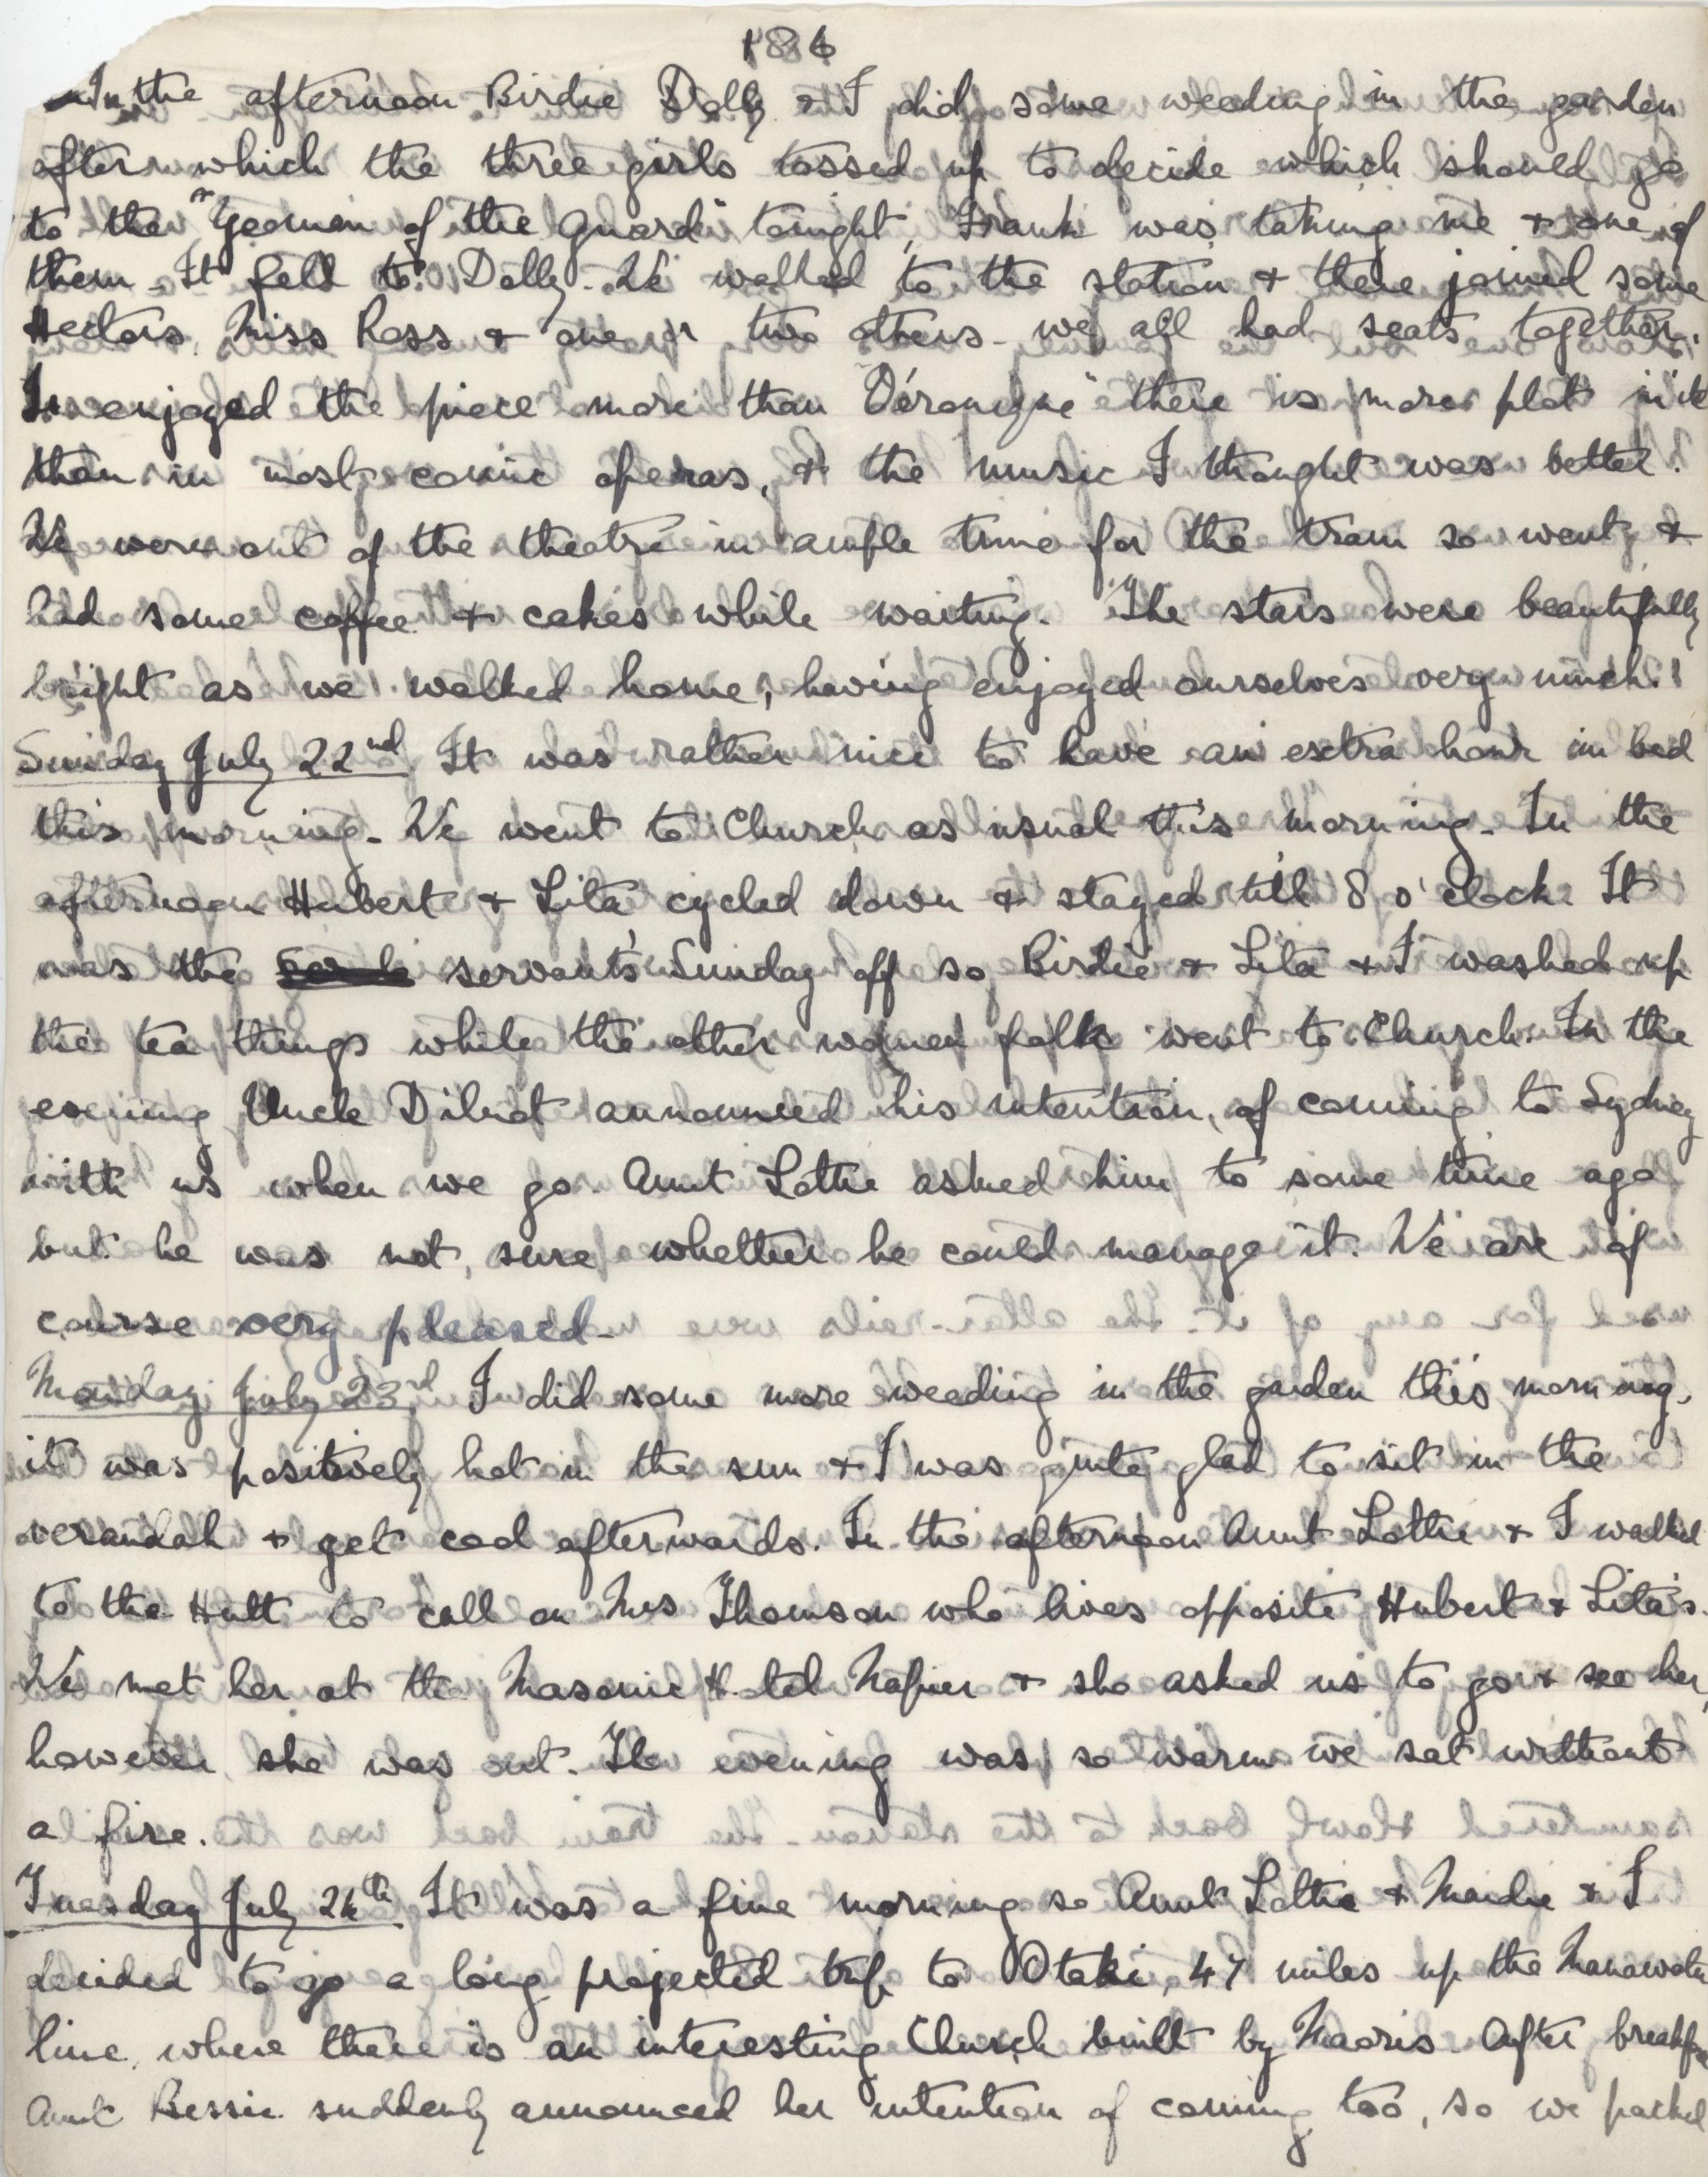 186
In the afternoon Birdie Dolly & I did some weeding in the garden
after which the three girls tossed up to decide which should go
to the "Yeomen of the Guard" tonight, Frank was taking me & one of
them. It fell to Dolly. We walked to the station & there joined some
Hectors, Miss Ross & one or two others - we all had seats together.
I enjoyed the piece more than "Véronique" there is more plot in it
than in most comic operas, & the music I thought was better.
We were out of the theatre in ample time for the tram so went &
had some coffee & cakes while waiting. The stars were beautifully
bright as we walked home, having enjoyed ourselves very much.
Sunday July 22nd It was rather nice to have an extra hour in bed
this morning. We went to Church as usual this morning. In the
afternoon Hubert & Lita cycled down & stayed till 8 o'clock. It
was the servant's Sunday off so Birdie & Lita & I washed up
the tea things while the other women folk went to Church. In the
evening Uncle Dilnot announced his intention, of coming to Sydney
with us when we go. Aunt Lottie asked him to some time ago
but he was not, sure whether he could manage it. We are of
course very pleased.
Monday July 23rd I did some more weeding in the garden this morning,
it was positively hot in the sun & I was quite glad to sit in the
verandah & get cool afterwards. In the afternoon Aunt Lottie & I walked
to the Hutt to call on Mrs Thomson who lives opposite Hubert & Lita's.
We met her at the Masonic Hotel Napier & she asked us to go & see her,
however she was out. The evening was so warm we sat without
a fire.
Tuesday July 24th It was a fine morning so Aunt Lottie & Maidie & I
decided to go a long projected trip to Otaki, 47 miles up the Manawatu
line, where there is an interesting Church built by Maoris. After
Aunt Bessie suddenly announced her intention of coming too, so we packed